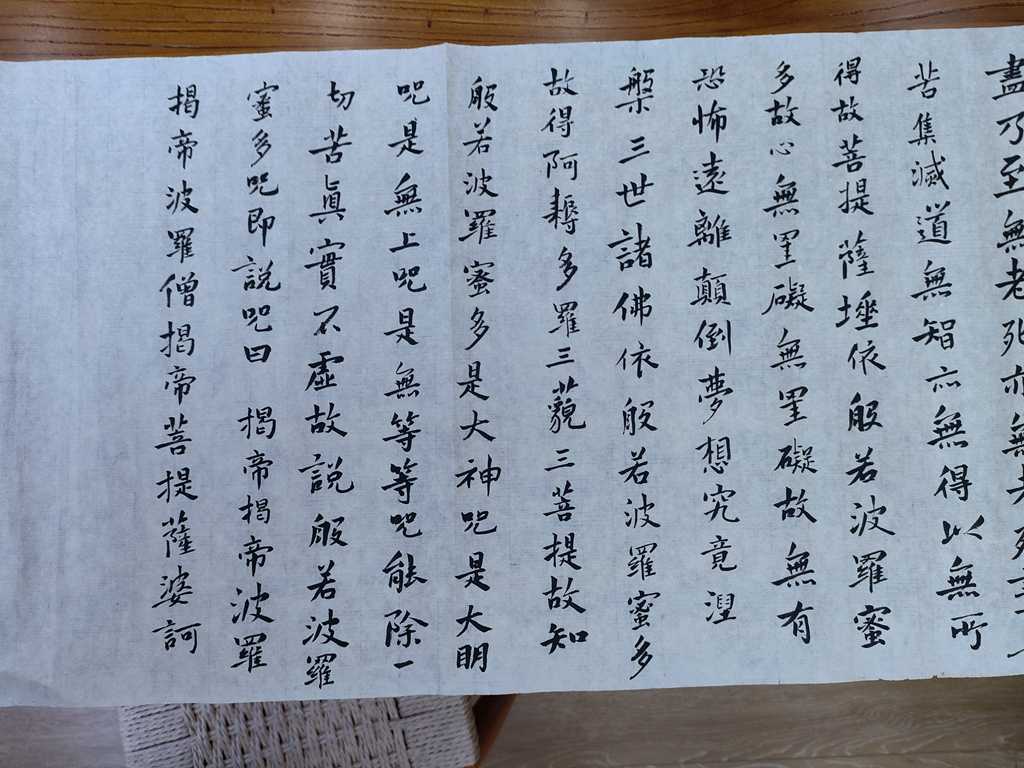 盡乃至無老死亦無老死
苦集滅道無智亦無得以無所
得故菩提薩埵依般若波羅蜜
多故心無罣礙無罣礙故無有
恐怖遠離顛倒夢想究竟涅
槃三世諸佛依般若波羅蜜多
故得阿耨多羅三藐三菩提故知
般若波羅蜜多是大神咒是大明
咒是無上咒是無等等咒能除一
切苦真實不虛故說般若波羅
蜜多咒即說咒曰 揭帝揭帝波羅
揭帝波羅僧揭帝菩提薩婆訶